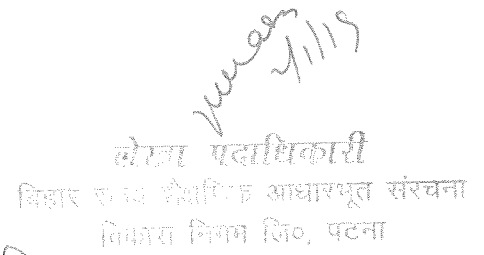 2/1/19
लेखा पदाधिकारी
बिहार राज्य शैक्षणिक आधारभूत संरचना
विकास निगम लि०, पटना